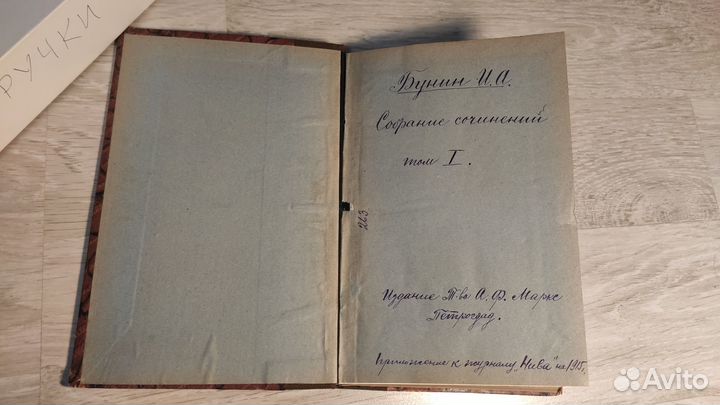 РУЧКИ
Бунин И.А.
Собрание сочинений
том I.
263
Издание Т-во А. Ф. Маркс
Петроград.
приложение к журналу „Нива" на 1915г.
Avito